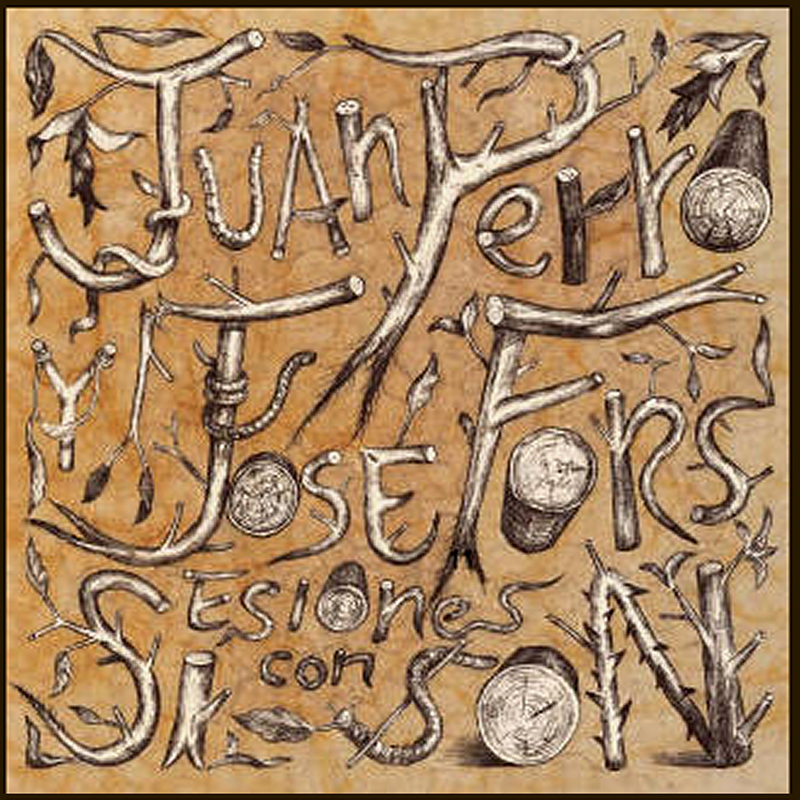 Juan Perro
y José Fors
Sesiones
con
Si-Son